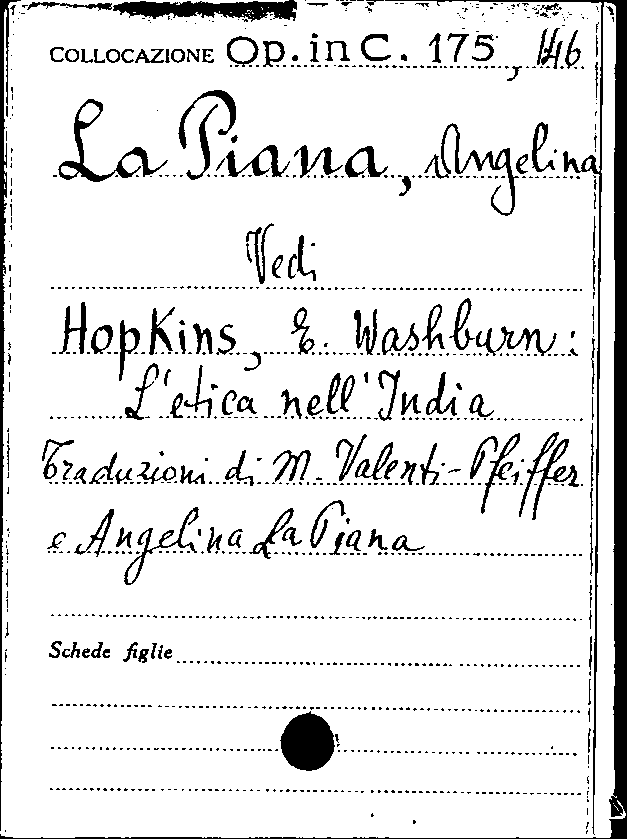 COLLOCAZIONE Op. in C. 175, 146
La Piana, Angelina
Vedi
Hopkins, E. Washburn:
L'etica nell'India
Traduzioni di M. Valenti-Pfeiffer
e Angelina La Piana
Schede figlie